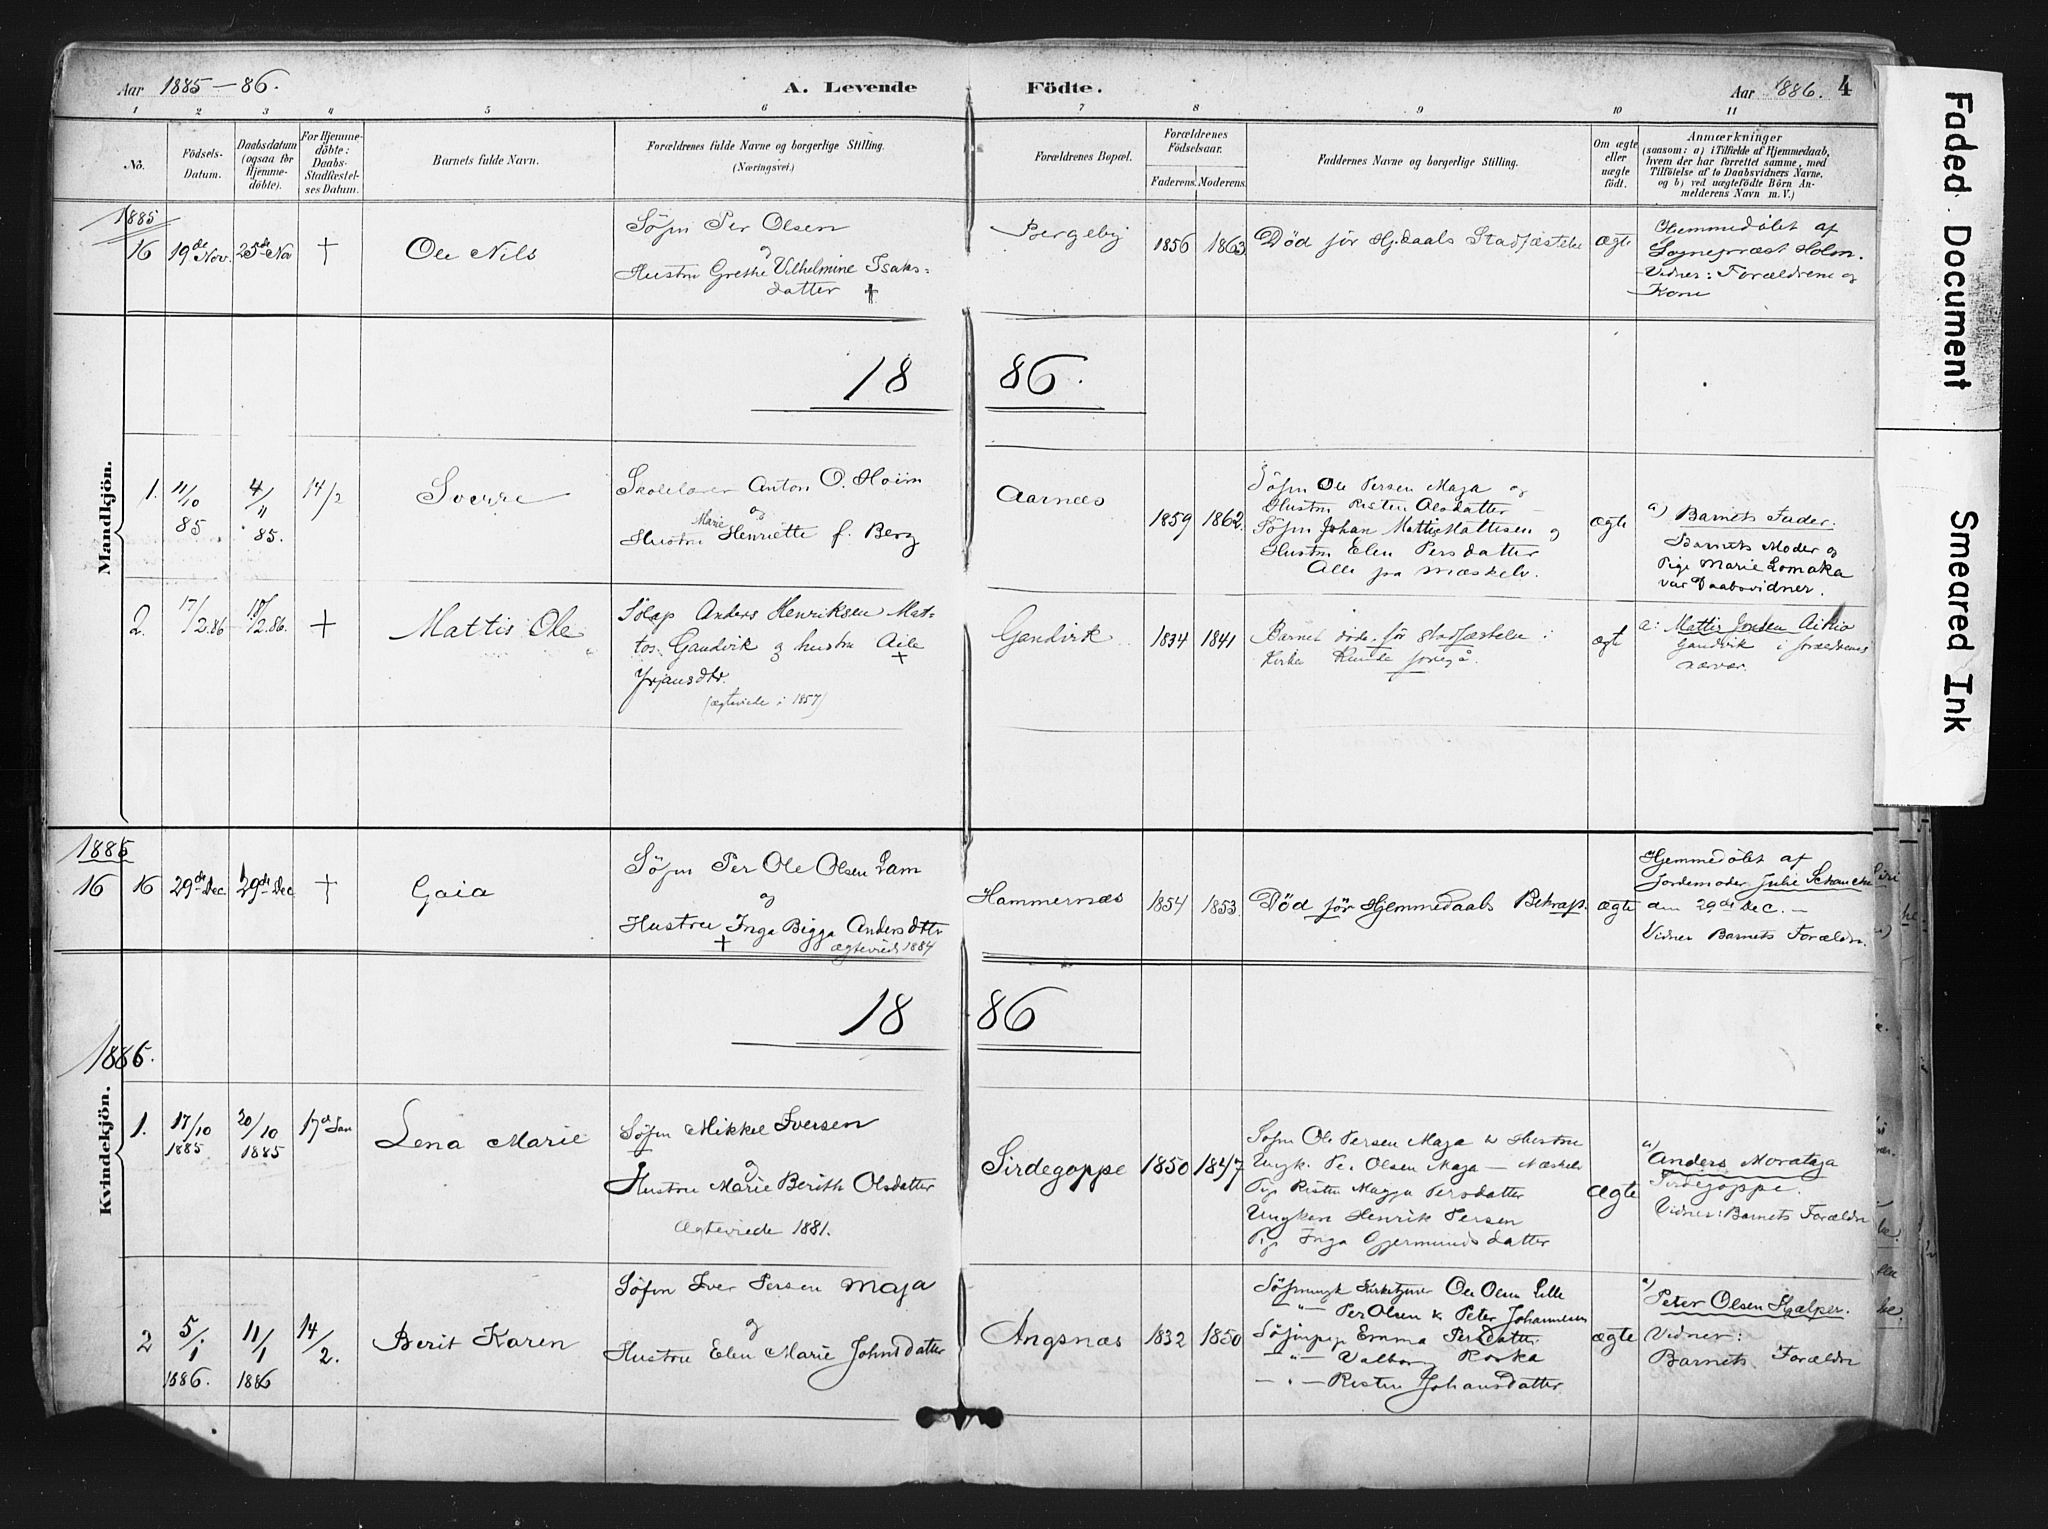 Aar 1885-86.
A. Levende Födte.
Aar 1886. 4
1 2 3 4 5 6 7 8 9 10 11
No.
Födsels-Datum.
Daabsdatum (ogsaa for Hjemme-döbte).
For Hjemme-döbte: Daabs-Stadfæstel-ses Datum.
Barnets fulde Navn.
Forældrenes fulde Navne og borgerlige Stilling. (Næringsvei.)
Forældrenes Bopæl.
Forældrenes Födselsaar.
Faderens. Moderens.
Faddernes Navne og borgerlige Stilling.
Om ægte eller uægte födt.
Anmærkninger
(saasom: a) i Tilfælde af Hjemmedaab,
hvem der har forrettet samme, med
Tilföielse af to Daabsvidners Navne,
og b) ved uægtefödte Börn An-
melderens Navn m. V.)
Mandkjön.
1885
16 19de Nov. 25de Nov †
Ole Nils
Söfin Per Olsen
og
Hustru Grethe Vilhelmine Isaks-
datter †
Bergeby
1856 1863
Död för Hj.daabs Stadfæstelse
ægte
Hjemmedöbt af
Sognepræst Holm.
Vidner: Forældrene og
Kone
18 86.
1. 11/10 85 4/11 85. 14/2
Sverre
Skolelærer Anton O. Hoim
og
Hustru Marie Henriette f. Berg
Aarnæs
1859 1862.
Söfin Ole Persen Maja og
Hustru Risten Olsdatter
Söfin Johan Mattis Mattisen og
Hustru Elen Persdatter
Alle fra Mæskelv.
ægte
a) Barnets Fader.
Barnets Moder og
Pige Marie Lomaka
var Daabsvidner.
2. 17/2.86 18/2.86. †
Mattis Ole
Sölap Anders Henriksen Mat-
tos. Gandvik og hustru Aile †
Yrjansdtr.
(ægteviede i 1857)
Gandvik
1834 1841
Barnet döde för stadfæstelse i
Kirke kunde foregå.
ægt
a: Mattis Jonsen Aikio
Gandvik i forældrenes
nærvær.
Kvindekjön.
1885
16 16 29de Dec 29de Dec †
Gaia
Söfin Per Ole Olsen Lam
og
Hustru Inga Bigga Andersdtr
† ægteviede 1884
Hammernæs
1854 1853.
Död för Hjemmedaabs Bekræf.
ægte
Hjemmedöbt af
Jordemoder Julie Schanche
den 29de Dec. -
Vidner Barnets Forældre.
18 86
1886.
1. 17/10 1885 20/10 1885 17de Jan
Lena Marie
Söfin Mikkel Iversen
og
Hustru Marie Berith Olsdatter
Ægteviede 1881.
Sirdegoppe
1850 1847
Söfin Ole Persen Maja & Hustru
Ungk. Per Olsen Maja - Næskelv
Pige Risten Magga Persdatter
Ungkar Henrik Persen
Pige Inga Gjermundsdatter
Ægte
a) Anders Morataja
Sirdegoppe.
Vidner: Barnets Forældre
2 5/1 1886. 11/1 1886 14/2.
Berit Karen
Söfin Iver Persen Maja
og
Hustru Elen Marie Johnsdatter
Angsnæs
1832 1850
Söfinungk Kirketjener Ole Olsen Lille
- " - Per Olsen & Peter Johannesen
Söfinpige Emma Persdatter
- " - Valborg Roska
- " - Risten Johansdatter
ægte
a) Peter Olsen Hjælper.
Vidner:
Barnets Forældre
Faded Document
Smeared Ink